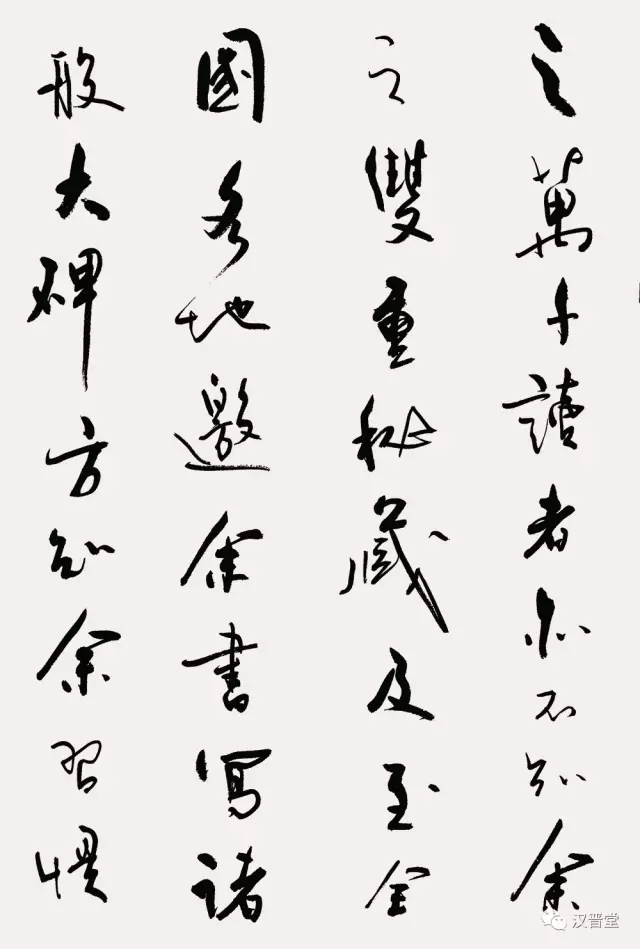 之萬千讀者亦不知余
之雙重秘藏及至全
國各地邀余書寫諸
般大碑方知余習慣
汉晋堂